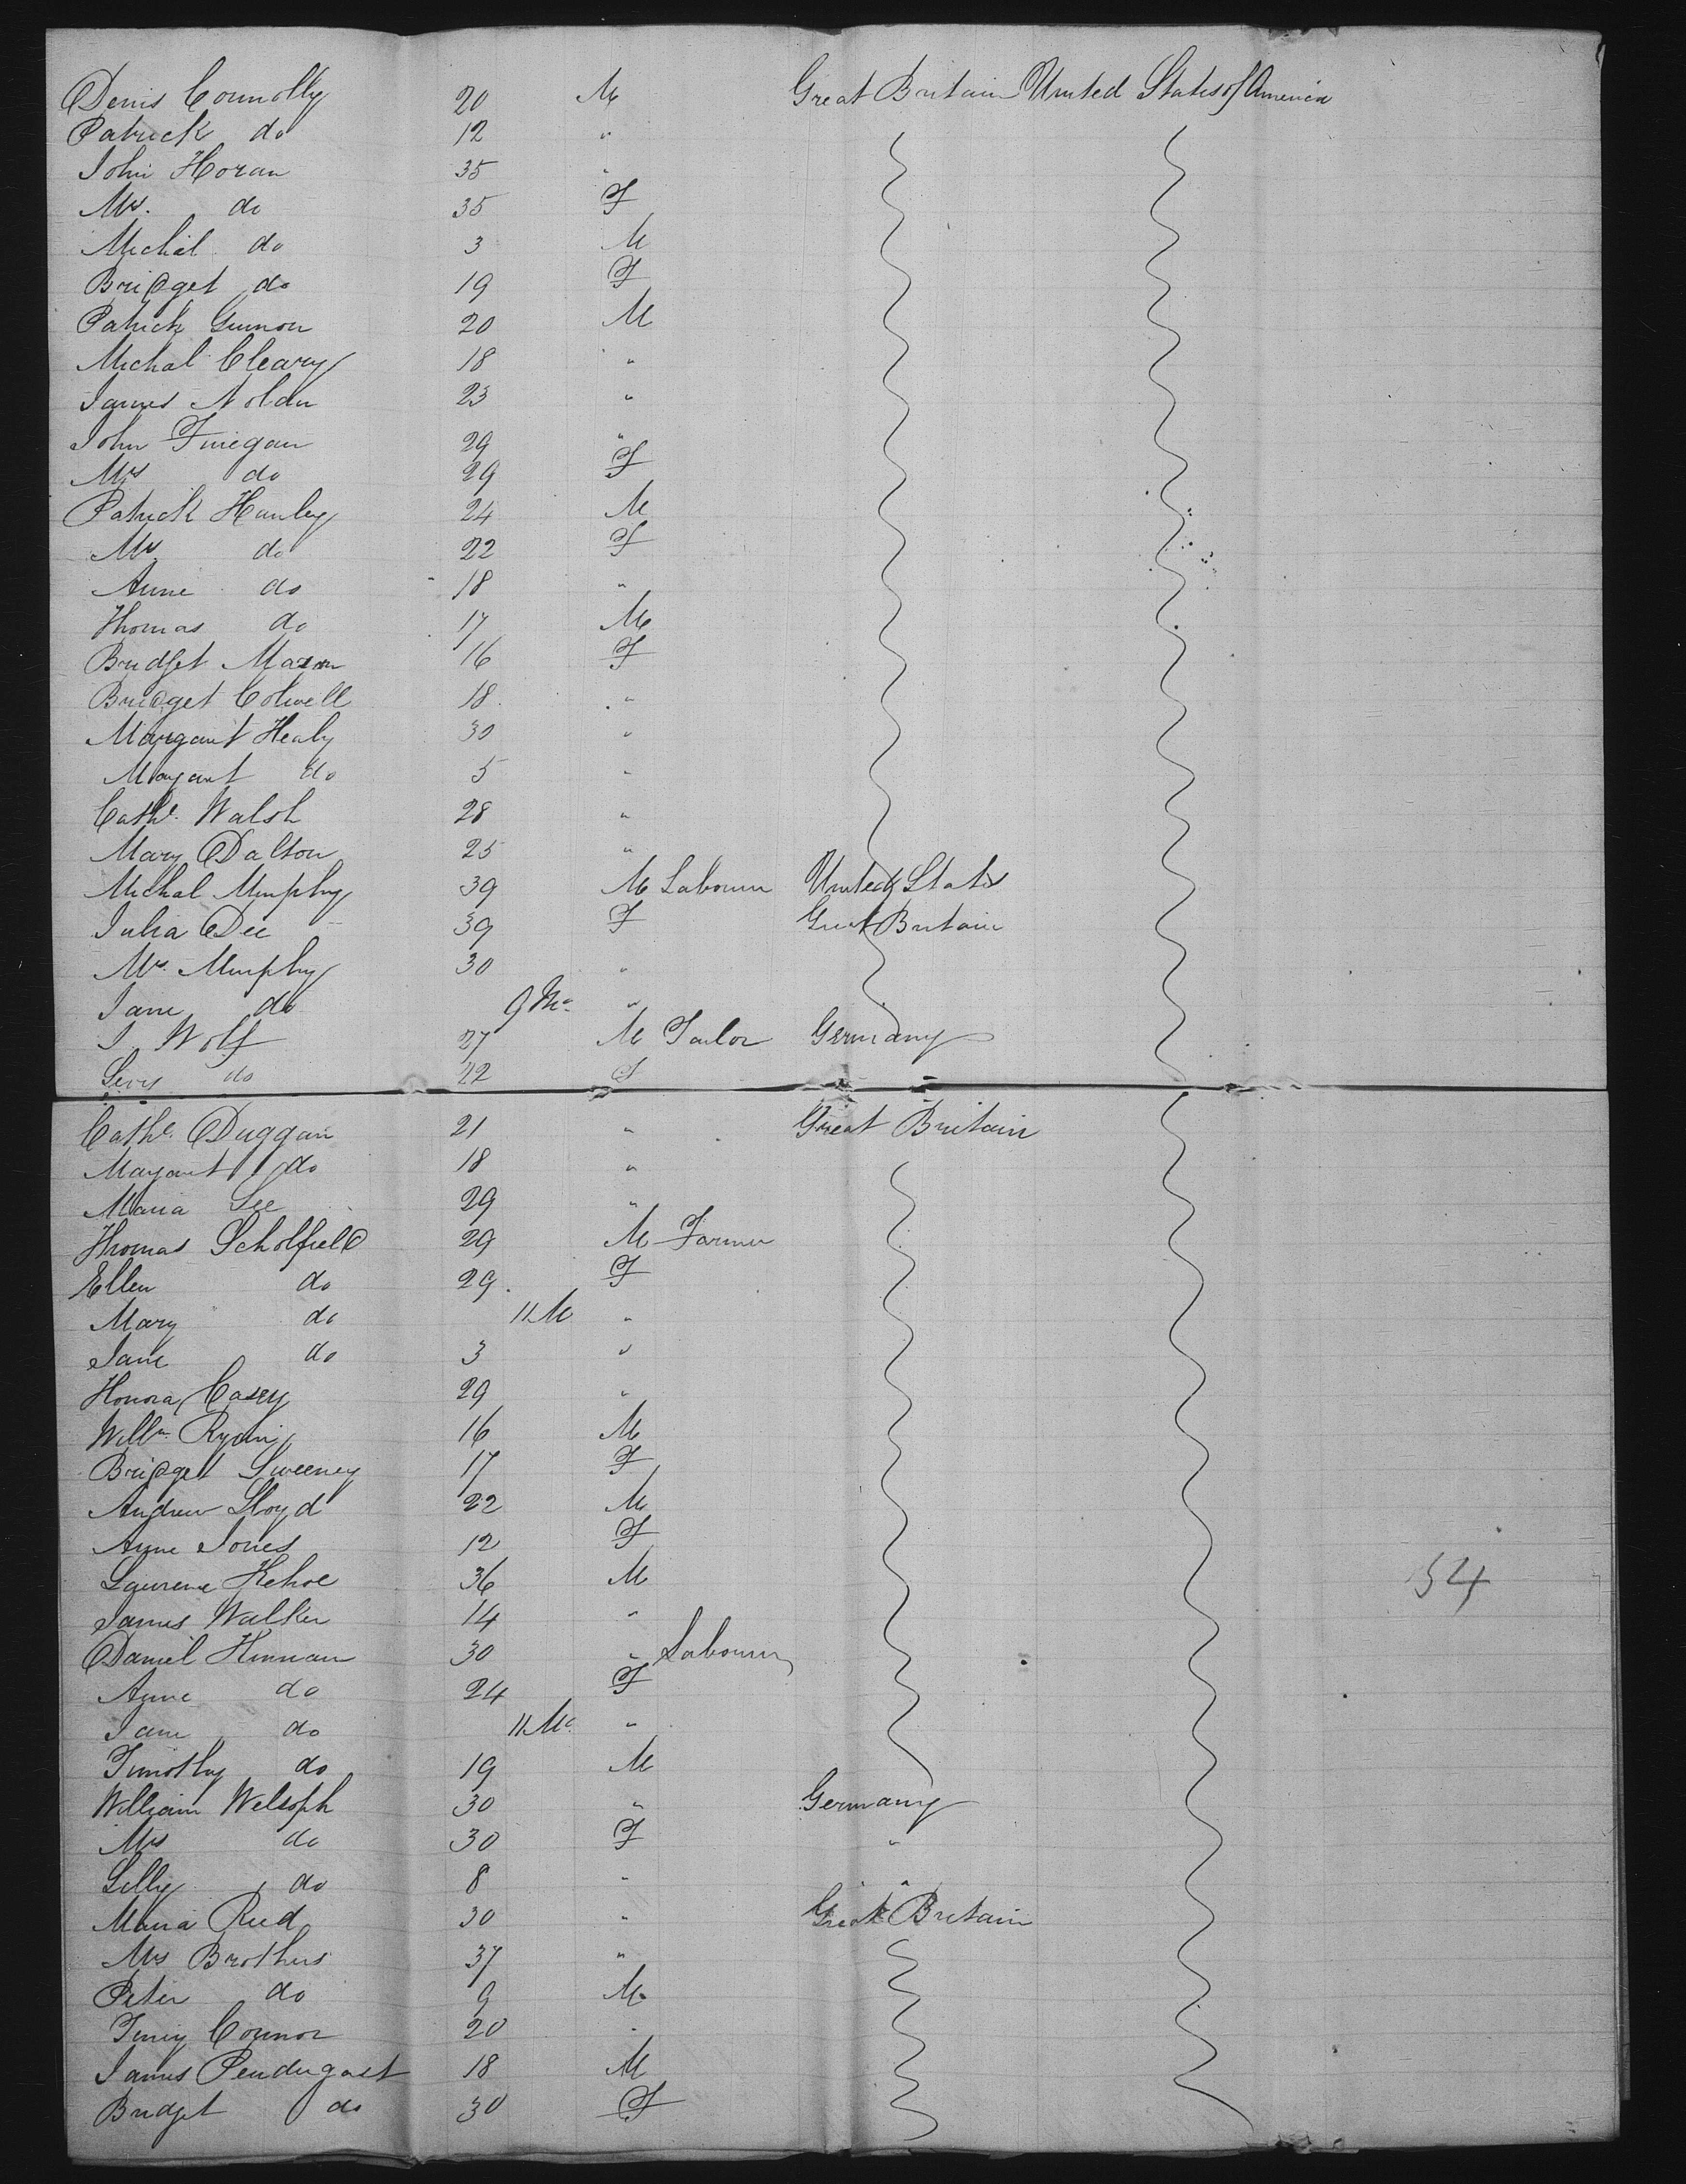 Denis Connolly 20 M Great Britain United States of America
Patrick do 12 "
John Horan 35 "
Mrs. do 35 F
Michal do 3 M
Bridget do 19 F
Patrick 20 M
Michal Cleary 18 "
James Nolan 23 "
John Finegan 29 "
Mrs do 29 F
Patrick Hanley 24 M
Mrs do 22 F
Anne do 18 "
Thomas do 17 M
Bridget Mason 16 F
Bridget Colwell 18 "
Margaret Healy 30 "
Margaret do 5 "
Cathe. Walsh 28 "
Mary Dalton 25 "
Michal Murphy 39 M Labourer United States
Julia Dee 39 F Great Britain
Mrs. Murphy 30 "
Jane do 9 Mo "
J Wolf 27 M Tailor Germany
do 22 F
Cathe. Duggan 21 " Great Britain
Margaret do 18 "
Maria Lee 29 "
Thomas Scholfield 29 M Farmer
Ellen do 29 F
Mary do 11 M "
Jane do 3 "
Honora Casey 29 "
Willm 16 M
Bridget Sweeney 17 F
Andrew Lloyd 22 M
Anne Jones 12 F
Laurence Kehoe 36 M
James Walker 14 "
Daniel Hinnan 30 " Labourer
Anne do 24 F
Jane do 11 Mo "
Timothy do 19 M
William Welsoph 30 " Germany
Mrs do 30 F "
Lilly do 8 " "
Maria Reed 30 " Great Britain
Mrs Brothers 37 "
Peter do 9 M
Connor 20 "
James Pendergast 18 M
Bridget do 30 F
54